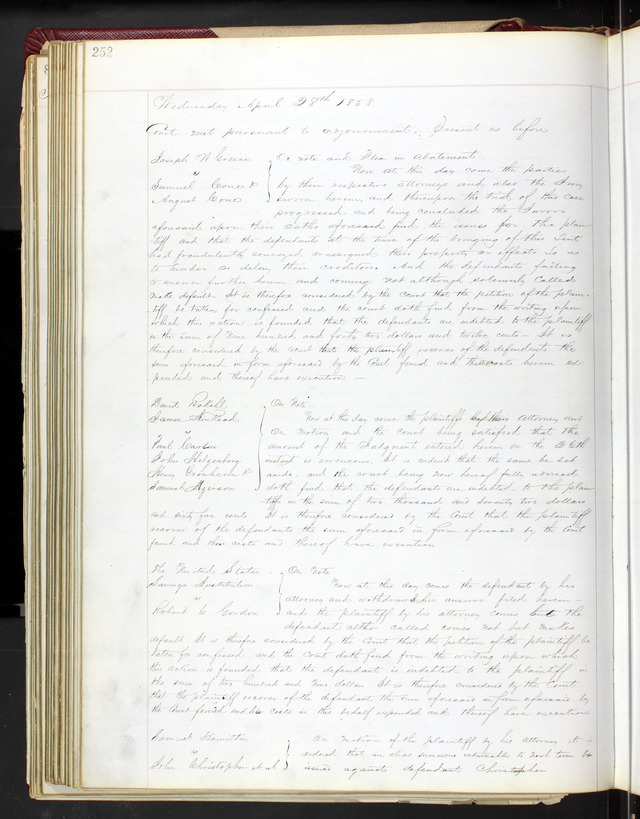 252
Wednesday April 28th 1858
Court met persuant to adjournment. Present as before
Joseph W Greene
vs
Samuel Cones &
August Cone
On note and Plea in abatement.
Now at this day come the parties
by their respective attorneys and also the Jury
sworn herein, and thereupon the trial of this case
progressed and being concluded the Jurors
aforesaid upon their Oaths aforesaid find the issues for the plain
tiff and that the defendants at the time of the bringing of this Suit
had fraudulently conveyed or assigned their property or effects so as
to hinder or delay their creditors. And the defendants failing
to answer further herein and coming not although solemnly called
make default. It is therefore considered by the Court that the petition of the plain-
tiff be taken for confessed and the court doth find from the writing upon
which this action is founded that the defendants are indebted to the plaintiff
in the sum of Nine hundred and forty two dollars and twelve cents. It is
therefore considered by the Court that the plaintiff recover of the defendants the
sum aforesaid in form aforesaid by the Court found and the costs herein ex
pended and thereof have execution —
David
James
vs
Paul
John
Henry &
Samuel
On Note
Now at this day come the plaintiffs by their attorney and
on motion and the Court being satisfied that the
amount of the Judgment entered herein on the 26th
instant is erroneous. It is ordered that the same be set
aside, and the court being now hereof fully advised
doth find that the defendant are indebted to the plain
tiffs in the sum of two thousand and seventy two dollars
and sixty five cents. It is therefore considered by the Court that the plaintiff
recover of the defendants the sum aforesaid in form aforesaid by the Court
found and their costs and thereof have execution
The United States
Savings Institution
vs
Robert C. Gordon
On Note
Now at this day comes the defendant by his
attorney and withdraws his answer filed herein
and the plaintiff by his attorney comes but the
defendant altho called comes not but makes
default. It is therefore considered by the Court that the petition of the plaintiff be
taken for confessed and the Court doth find from the writing upon which
this action is founded that the defendant is indebted to the plaintiff in
the sum of two hundred and nine dollars. It is therefore considered by the Court
that the plaintiff recover of the defendant the sum aforesaid in form aforesaid by
the Court found and his costs in this behalf expended and thereof have execution
Samuel Hamilton
vs
John Christopher et al
On motion of the plaintiff by his attorney it is
ordered that an alias summons returnable to next term be
issued against defendant Christopher